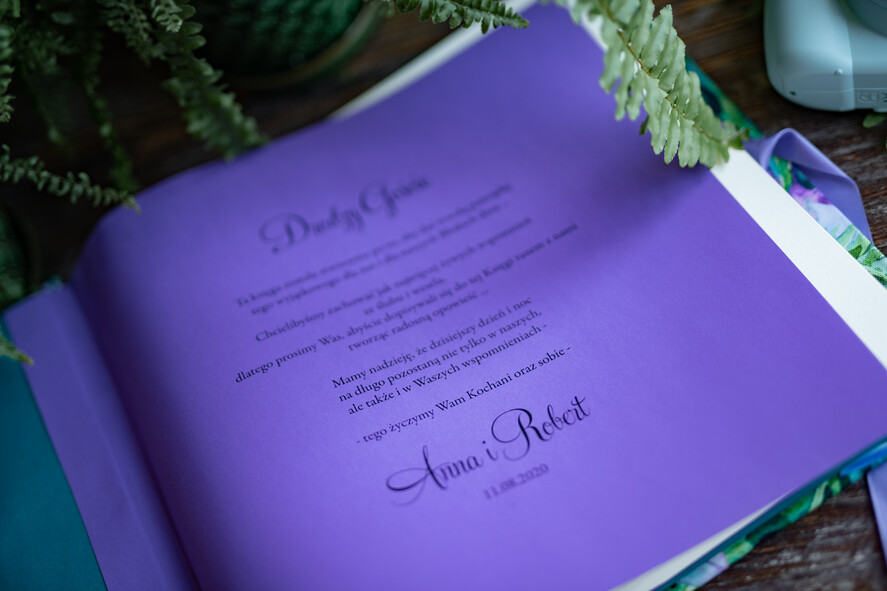 Drodzy Goście
Ta księga została stworzona po to, aby
tego wyjątkowego dla nas i dla naszych bliskich dnia.
Chcielibyśmy zachować jak najwięcej żywych wspomnień
ze ślubu i wesela,
dlatego prosimy Was, abyście dopisywali się do tej Księgi razem z nami
tworząc radosną opowieść ...
Mamy nadzieję, że dzisiejszy dzień i noc
na długo pozostaną nie tylko w naszych,
ale także i w Waszych wspomnieniach -
- tego życzymy Wam Kochani oraz sobie -
Anna i Robert
11.08.2020